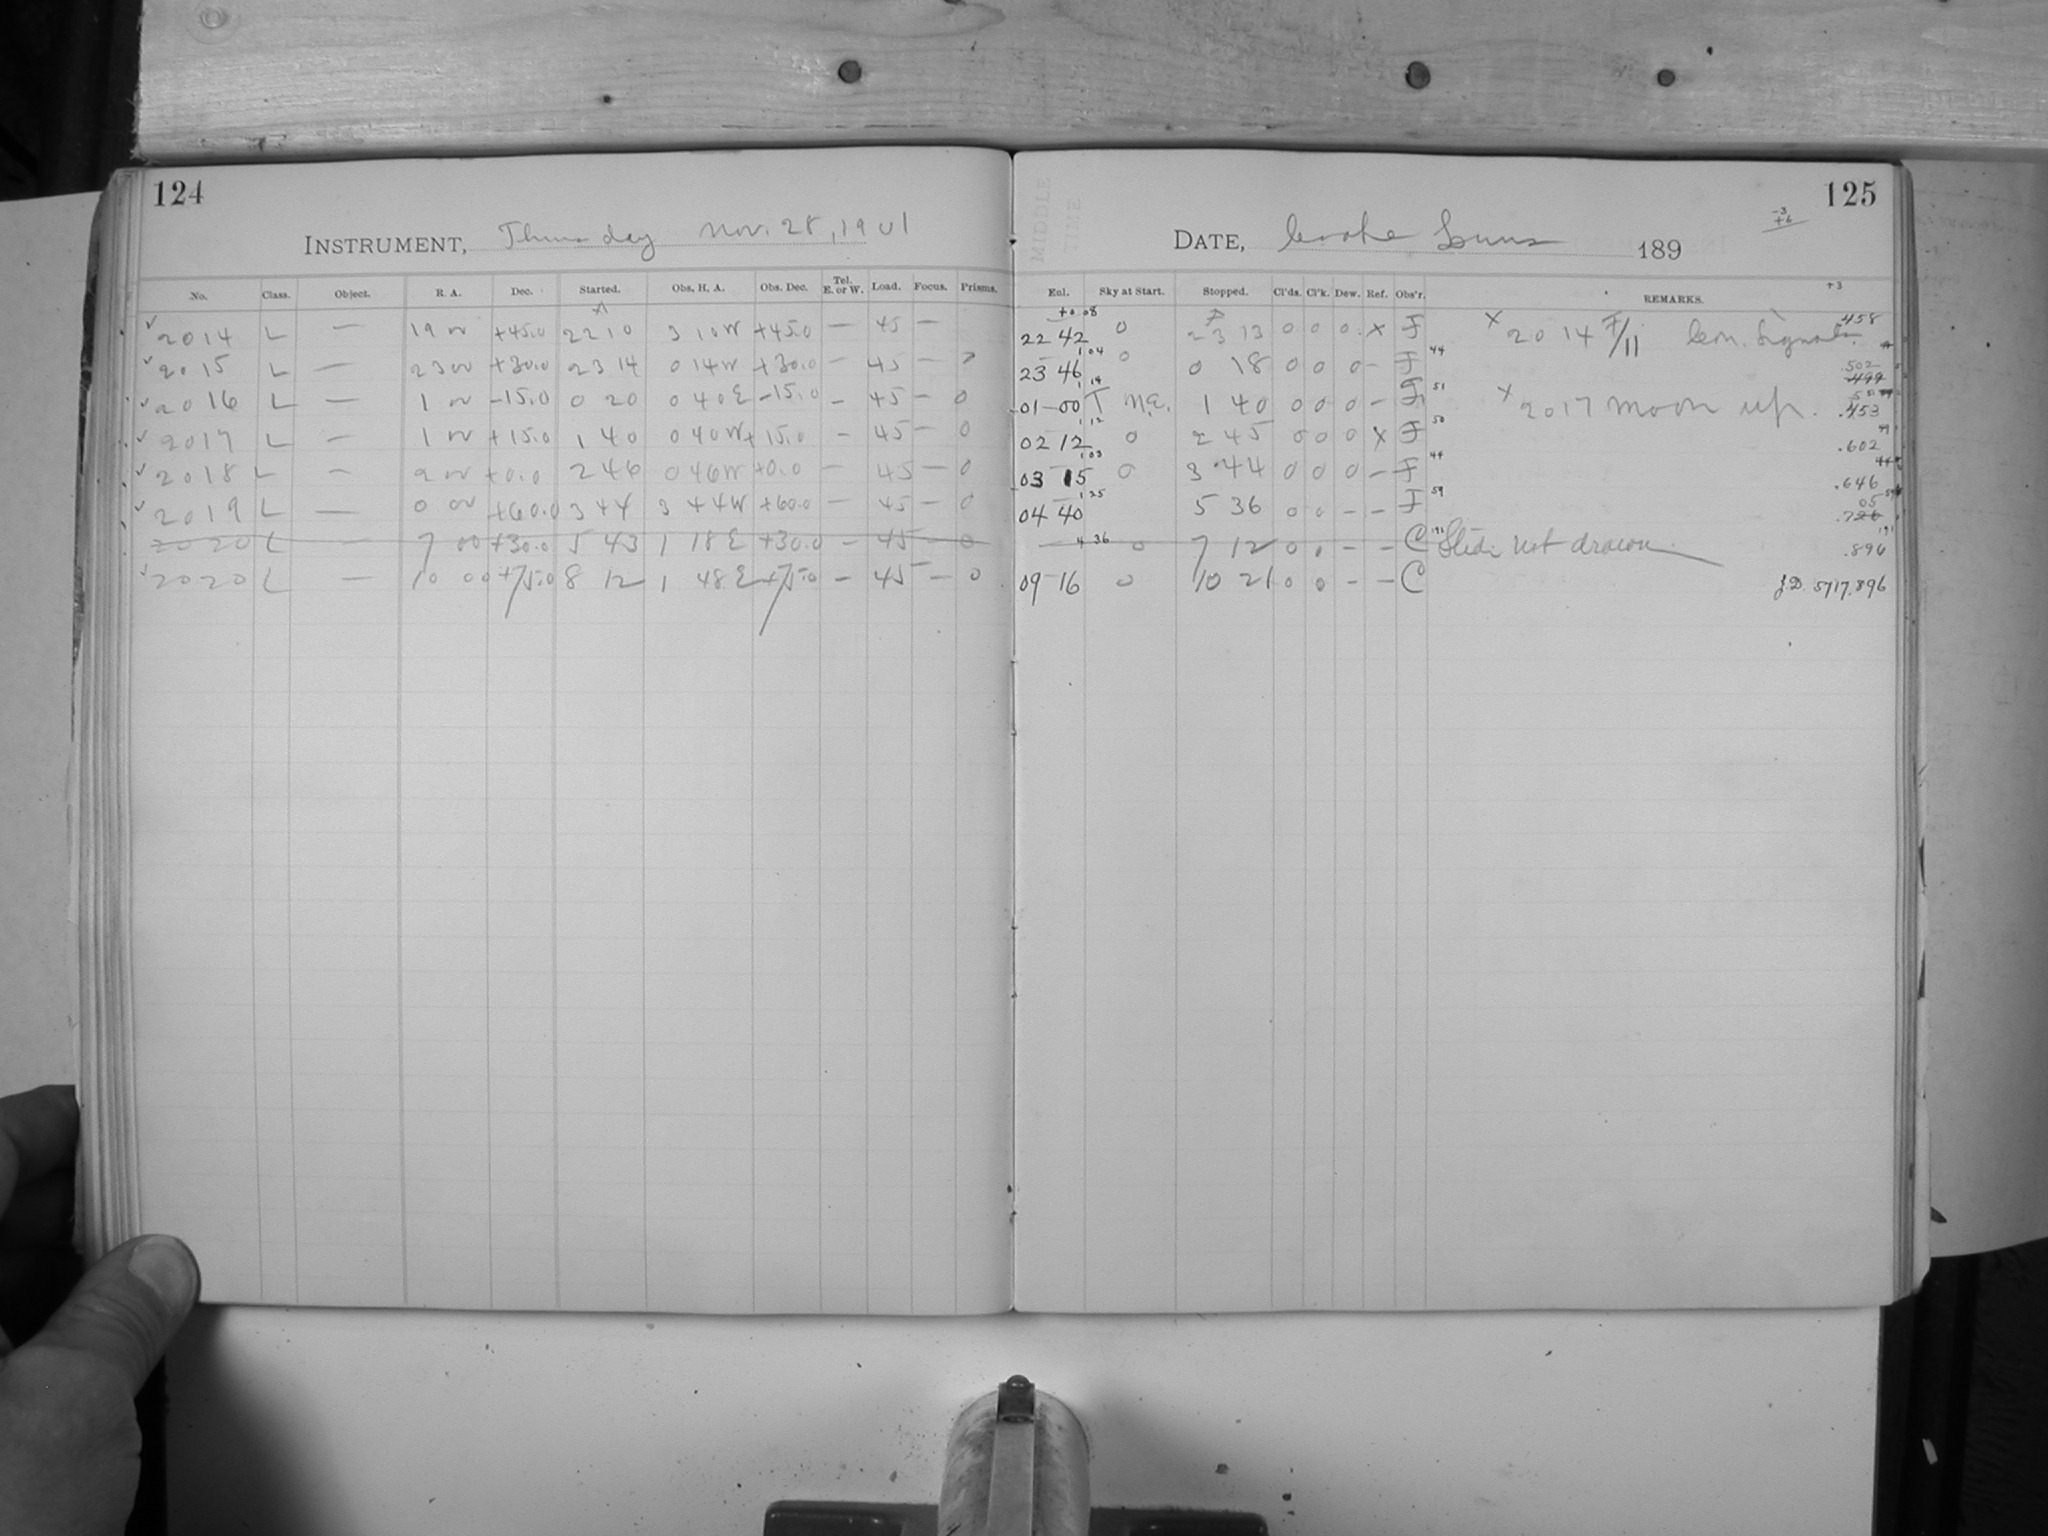 124
INSTRUMENT, Thursday Nov. 28, 1901
No. Class. Object. R. A. Dec. Started. Obs. H. A. Obs. Dec. Tel. E. or W. Load. Focus. Prisms.
2014 L — 19 00 +45.0 22 10 3 10W +45.0 — 45 —
2015 L — 23 00 +30.0 23 14 0 14W +30.0 — 45 —
2016 L — 1 00 -15.0 0 20 0 40E -15.0 — 45 — 0
2017 L — 1 00 +15.0 1 40 0 40W +15.0 — 45 — 0
2018 L — 2 00 +0.0 2 46 0 46W +0.0 — 45 — 0
2019 L — 0 00 +60.0 3 44 3 44W +60.0 — 45 — 0
2020 L — 7 00 +30.0 5 43 1 18E +30.0 — 45 — 0
2020 L — 10 00 +75.0 8 12 1 48E +75.0 — 45 — 0
125
MIDDLE TIME
DATE, Cooke Lens 189
-3
+6
+3
Eol. Sky at Start. Stopped. Cl'ds. Cl'k. Dew. Ref. Obs'r. REMARKS.
+0.08
22 42 0 23 13 0 0 0 X F X 2014 F/11 .458
1 04
23 46 0 0 18 0 0 0 — F 44 .502
.499
1 14
01 00 T N.E. 1 40 0 0 0 — F 51 X 2017 moon up. .453
1 12
02 12 0 2 45 0 0 0 X F 50 .602
1 03
03 15 0 3 44 0 0 0 — F 44 .646
1 25
04 40 5 36 0 0 — — F 59 05
.726
4 36 0 7 12 0 0 — — C 191 Slide not drawn .896
09 16 0 10 21 0 0 — — C J.D. 5717.896